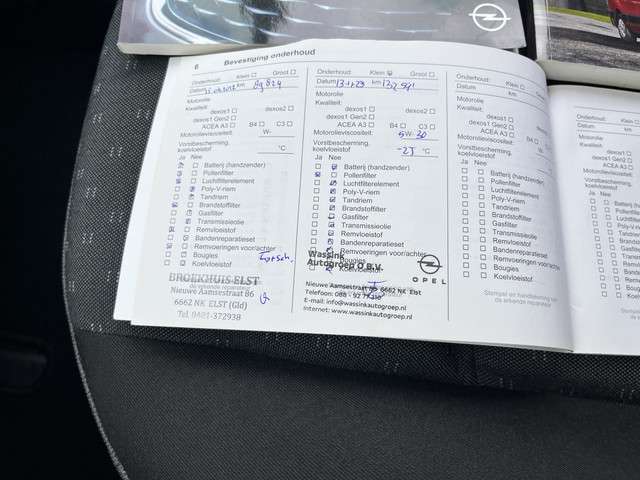 6 Bevestiging onderhoud
Onderhoud: Klein Groot
Datum km 89824
Motorolie
Kwaliteit:
dexos1 dexos2
dexos1 Gen2
ACEA A3 B4 C3
Motorolieviscositeit: W-
Vorstbescherming,
koelvloeistof °C
Ja Nee
Batterij (handzender)
Pollenfilter
Luchtfilterelement
Poly-V-riem
Tandriem
Brandstoffilter
Gasfilter
Transmissieolie
Remvloeistof
Bandenreparatieset
Remvoeringen voor/achter
Bougies
Koelvloeistof
BROEKHUIS ELST
Nieuwe Aamsestraat 86
6662 NK ELST (Gld)
Tel. 0481-372938
Onderhoud: Klein Groot
Datum km
Motorolie
Kwaliteit:
dexos1 dexos2
dexos1 Gen2
ACEA A3 B4 C3
Motorolieviscositeit: 5 W- 30
Vorstbescherming,
koelvloeistof -25 °C
Ja Nee
Batterij (handzender)
Pollenfilter
Luchtfilterelement
Poly-V-riem
Tandriem
Brandstoffilter
Gasfilter
Transmissieolie
Remvloeistof
Bandenreparatieset
Remvoeringen voor/achter
Bougies
Koelvloeistof
Wassink
Autogroep O B.V.
OPEL
Nieuwe Aamsestraat 86 6662 NK Elst
Telefoon: 088 - 92
E-mail: info@wassinkautogroep.nl
Internet: www.wassinkautogroep.nl
Onderhoud: Klein Groot
Datum km
Motorolie
Kwaliteit:
dexos1 dexos2
dexos1 Gen2
ACEA A3 B4 C3
Motorolieviscositeit: W-
Vorstbescherming,
koelvloeistof °C
Ja Nee
Batterij (handzender)
Pollenfilter
Luchtfilterelement
Poly-V-riem
Tandriem
Brandstoffilter
Gasfilter
Transmissieolie
Remvloeistof
Bandenreparatieset
Remvoeringen voor/achter
Bougies
Koelvloeistof
Stempel en handtekening van
de erkende reparateur
Onderhoud:
Datum
Motorolie
Kwaliteit:
dexos1
dexos1 Gen2
ACEA A3
Motorolieviscositeit:
Vorstbescherming,
koelvloeistof
Ja Nee